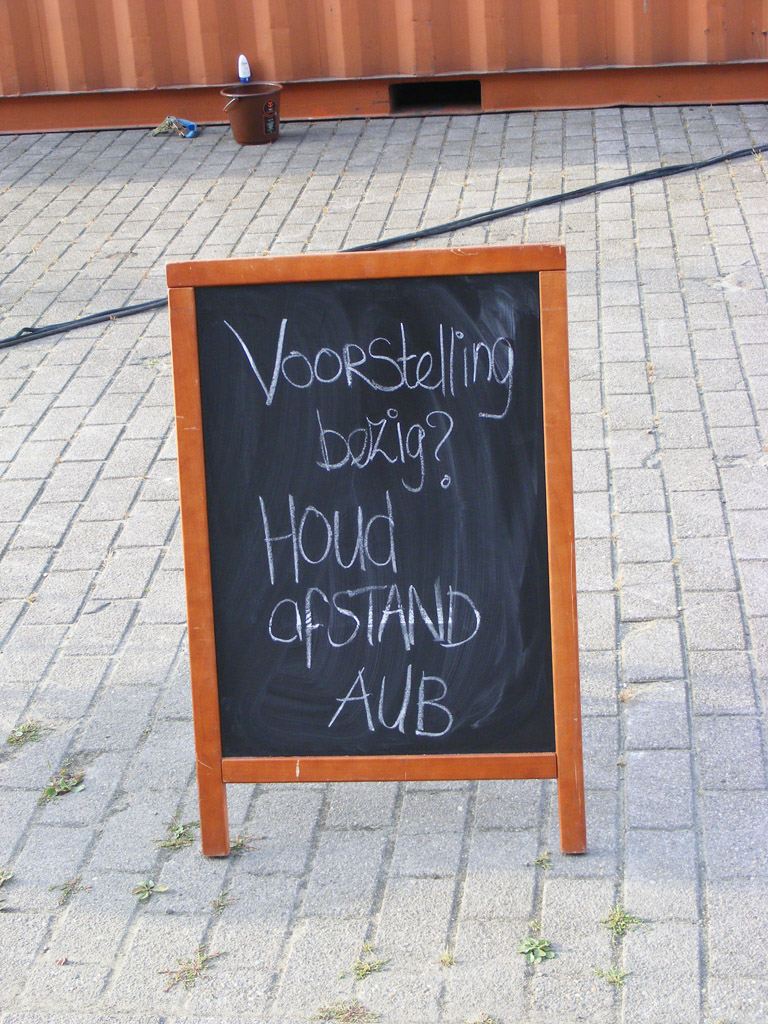 Voorstelling
bezig?
Houd
afstand
AUB